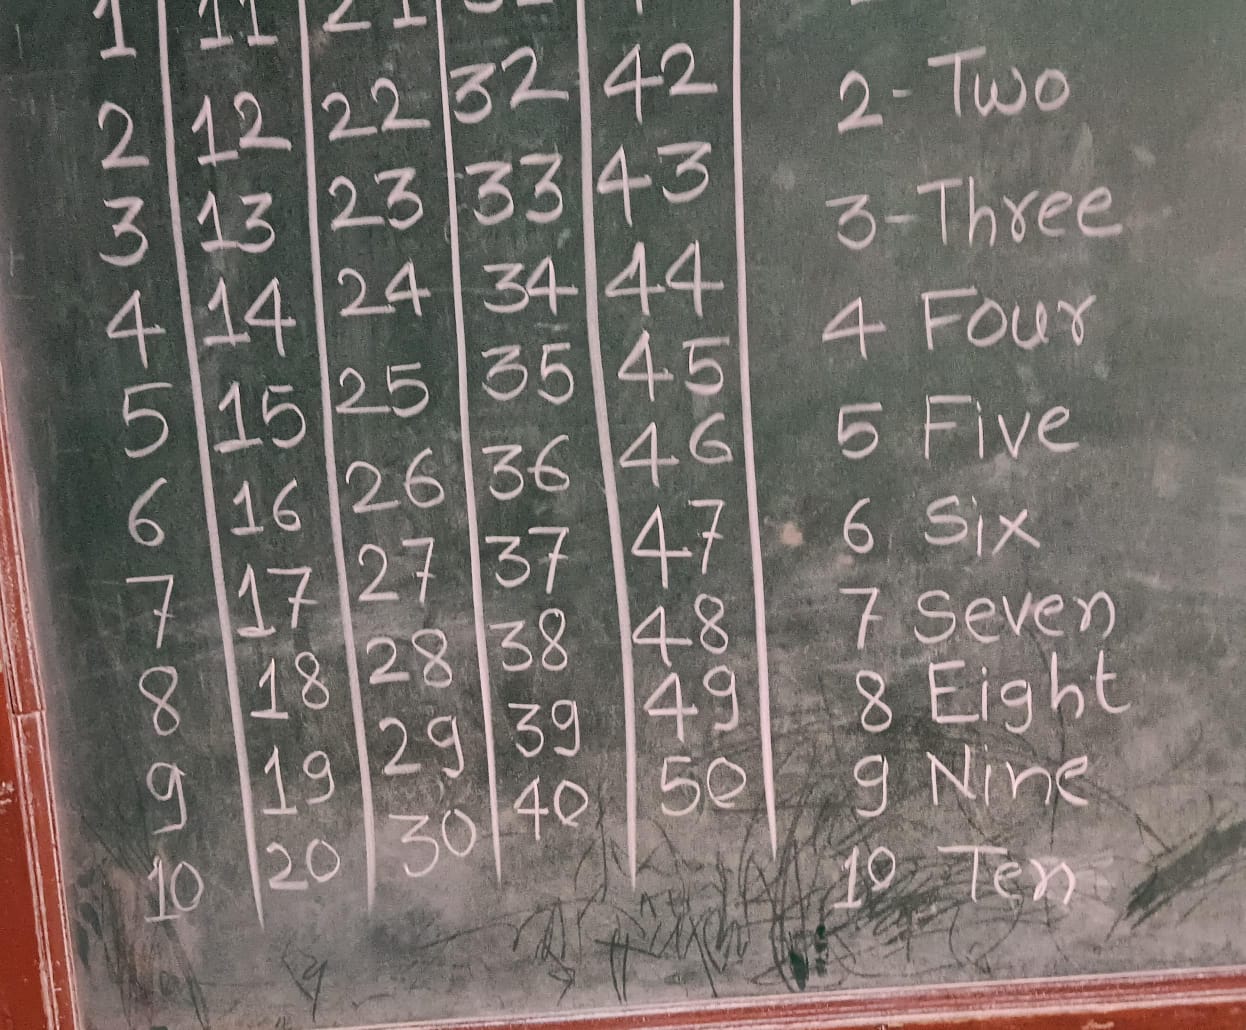 1 11 21
2 12 22 32 42 2- Two
3 13 23 33 43 3-Three
4 14 24 34 44 4 Four
5 15 25 35 45 5 Five
6 16 26 36 46 6 Six
7 17 27 37 47 7 Seven
8 18 28 38 48 8 Eight
9 19 29 39 49 9 Nine
10 20 30 40 50 10 Ten